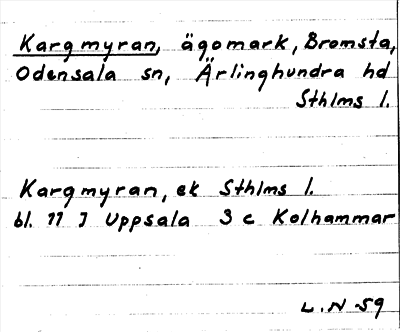 Kargmyran, ägomark, Bromsta,
Odensala sn, Ärlinghundra hd
Sthlms l.
Kargmyran, ek Sthlms l.
bl. 11 J Uppsala 3 c Kolhammar
L.N -59